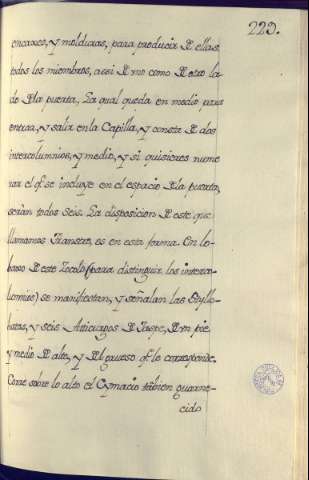 229.
encaxes, y molduras, para producir de ellas
todos los miembros, assi de uno como de otro la-
do de la puerta, La qual queda en medio para
entrar, y salir en la Capilla, y consta de dos
intercolumnios, y medio, y si quisieres nume
rar el qe. se incluye en el espacio de la puerta,
seràn todos seis. La disposicion de este que
llamamos Transito, es en esta forma. En lo
baxo de este Zocolo (para distinguir los interco-
lumnios) se manifiestan, y señalan las Estylo-
batas, y seis Aticurgos de Jaspe, de un pie
y medio de alto, y del grueso qe. le corresponde.
Corre sobre lo alto el Cymacio tābien guarne-
cido